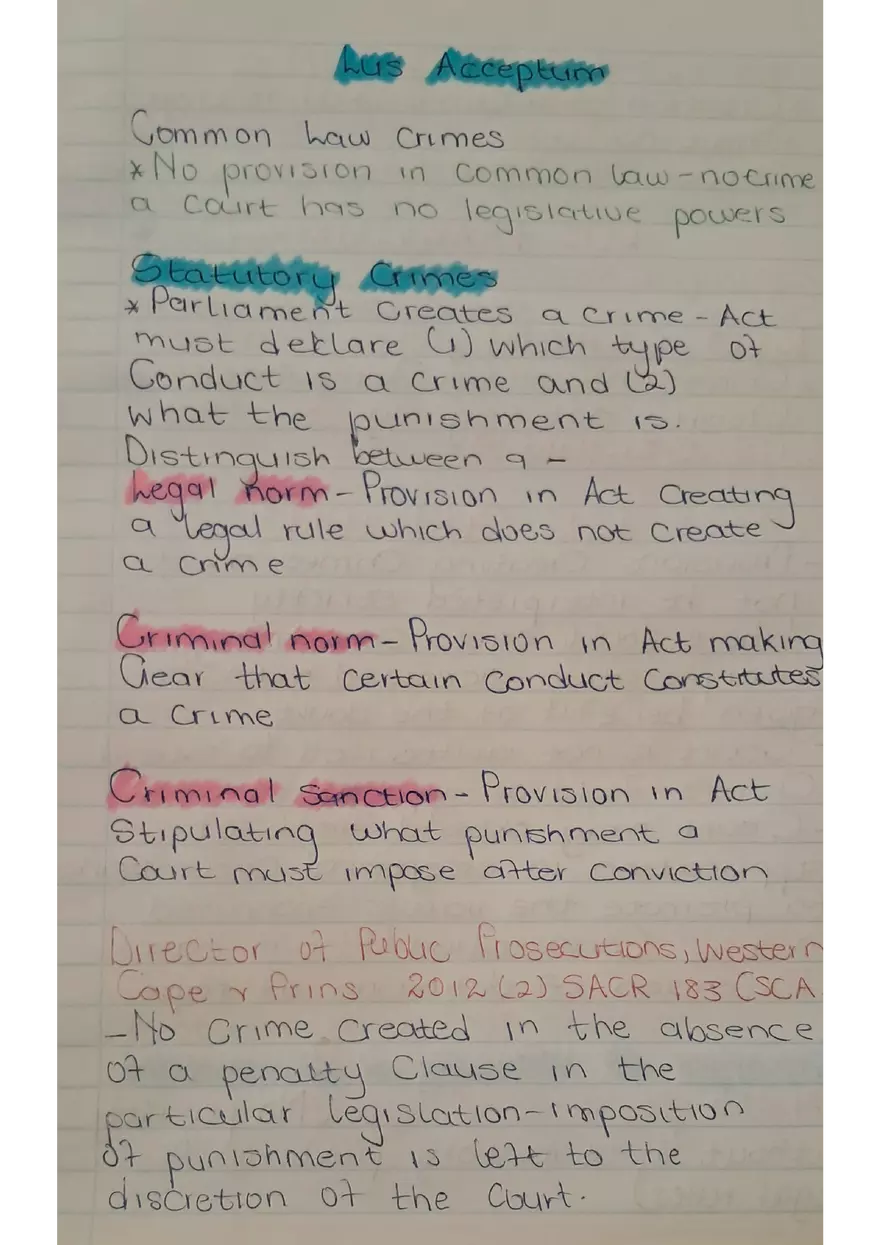 Lus Acceptum
Common Law Crimes
* No provision in common law - no crime
a court has no legislative powers
Statutory Crimes
* Parliament creates a crime - Act
must deklare (1) which type of
Conduct is a crime and (2)
what the punishment is.
Distinguish between a -
Legal norm - Provision in Act Creating
a legal rule which does not create
a crime
Criminal norm - Provision in Act making
Clear that certain conduct constitutes
a crime
Criminal sanction - Provision in Act
Stipulating what punishment a
Court must impose after conviction
Director of Public Prosecutions, Western
Cape v Prins 2012 (2) SACR 183 (SCA
- No crime created in the absence
of a penalty Clause in the
particular legislation - imposition
of punishment is left to the
discretion of the Court.